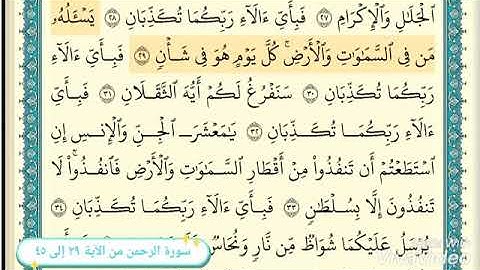 الْجَلَٰلِ وَالْإِكْرَامِ ٢٧ فَبِأَيِّ ءَالَآءِ رَبِّكُمَا تُكَذِّبَانِ ٢٨ يَسْـَٔلُهُۥ
مَن فِي السَّمَٰوَٰتِ وَالْأَرْضِ ۚ كُلَّ يَوْمٍ هُوَ فِي شَأْنٍ ٢٩ فَبِأَيِّ ءَالَآءِ
رَبِّكُمَا تُكَذِّبَانِ ٣٠ سَنَفْرُغُ لَكُمْ أَيُّهَ الثَّقَلَانِ ٣١ فَبِأَيِّ
ءَالَآءِ رَبِّكُمَا تُكَذِّبَانِ ٣٢ يَٰمَعْشَرَ الْجِنِّ وَالْإِنسِ إِنِ
اسْتَطَعْتُمْ أَن تَنفُذُوا۟ مِنْ أَقْطَارِ السَّمَٰوَٰتِ وَالْأَرْضِ فَانفُذُوا۟ ۚ لَا
تَنفُذُونَ إِلَّا بِسُلْطَٰنٍ ٣٣ فَبِأَيِّ ءَالَآءِ رَبِّكُمَا تُكَذِّبَانِ ٣٤
يُرْسَلُ عَلَيْكُمَا شُوَاظٌ مِّن نَّارٍ وَنُحَاسٌ
سورة الرحمن من الآية ٢٩ إلى ٤٥
VivaVideo